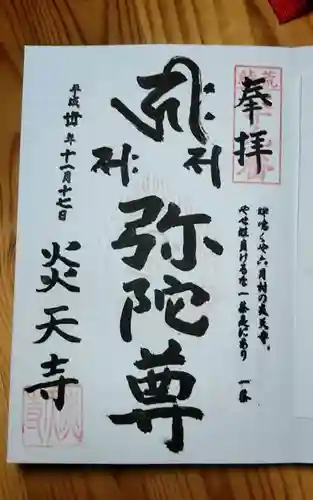 奉拝
蝉鳴くや六月村の炎天寺。
やせ蛙負けるな一茶是にあり 一茶
𑖮𑖿𑖨𑖱𑖾
𑖭 𑖭𑖾
弥陀尊
平成卅年十一月十七日
炎天寺